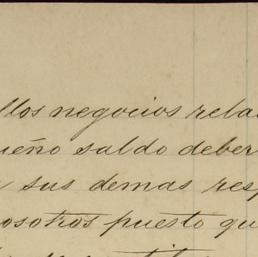 llos negocios rela
ueño saldo deber
sus demas resp
osotros puesto qu